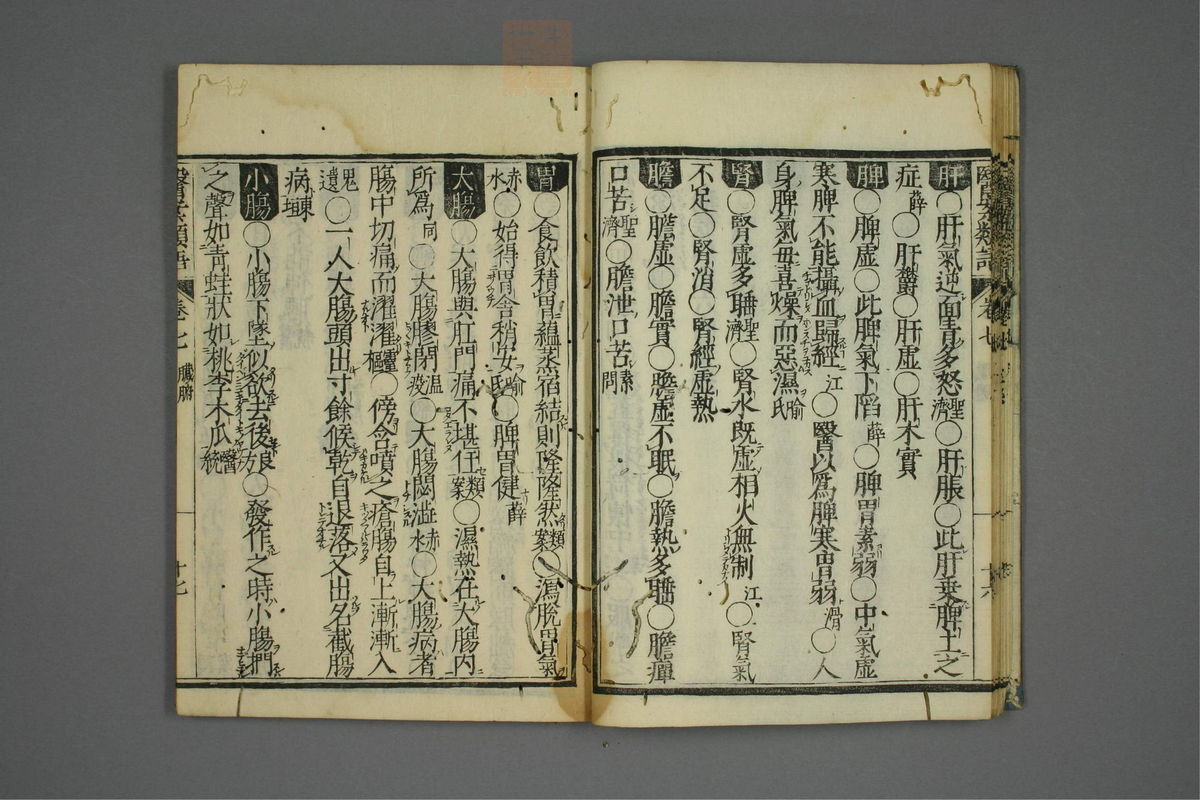 醫學類語 卷七 十六
肝○肝氣逆面青多怒聖濟○肝脹○此肝乗脾土之
症薛○肝鬱○肝虚○肝木實
脾○脾虚○此脾氣下陷薛○脾胃素弱○中氣虚
寒脾不能攝血歸經江○醫以爲脾寒胃弱滑○人
身脾氣毎喜燥而惡濕喻氏
腎○腎虚多唾聖濟○腎水既虚相火無制江○腎氣
不足○腎消○腎經虚熱
膽○膽虚○膽實○膽虚不眠○膽熱多睡○膽癉
口苦聖濟○膽泄口苦素問
胃○食飲積胃蘊蒸宿結則隆隆然類案○瀉脱胃氣
赤水○始得胃舎稍安喻氏○脾胃健薛
大腸○大腸與肛門痛不堪任類案○濕熱在大腸内
所爲同○大腸膠閉温疫○大腸閟澁赤水○大腸病者
腸中切痛而濯濯靈樞○傍含噴之瘡腸自上漸漸入
鬼遺○一人大腸頭出寸餘候乾自退落又出名截腸
病垣東
小腸○小腸下墜似欲去後狼○發作之時小腸捫
之聲如青蛙狀如桃李木瓜醫統
醫學類語 卷七 臟腑 十七